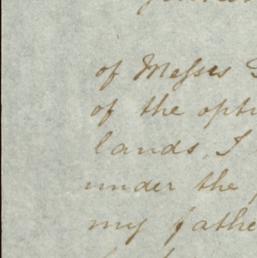 of Messes
of the opti
lands, I
under the
my fathe